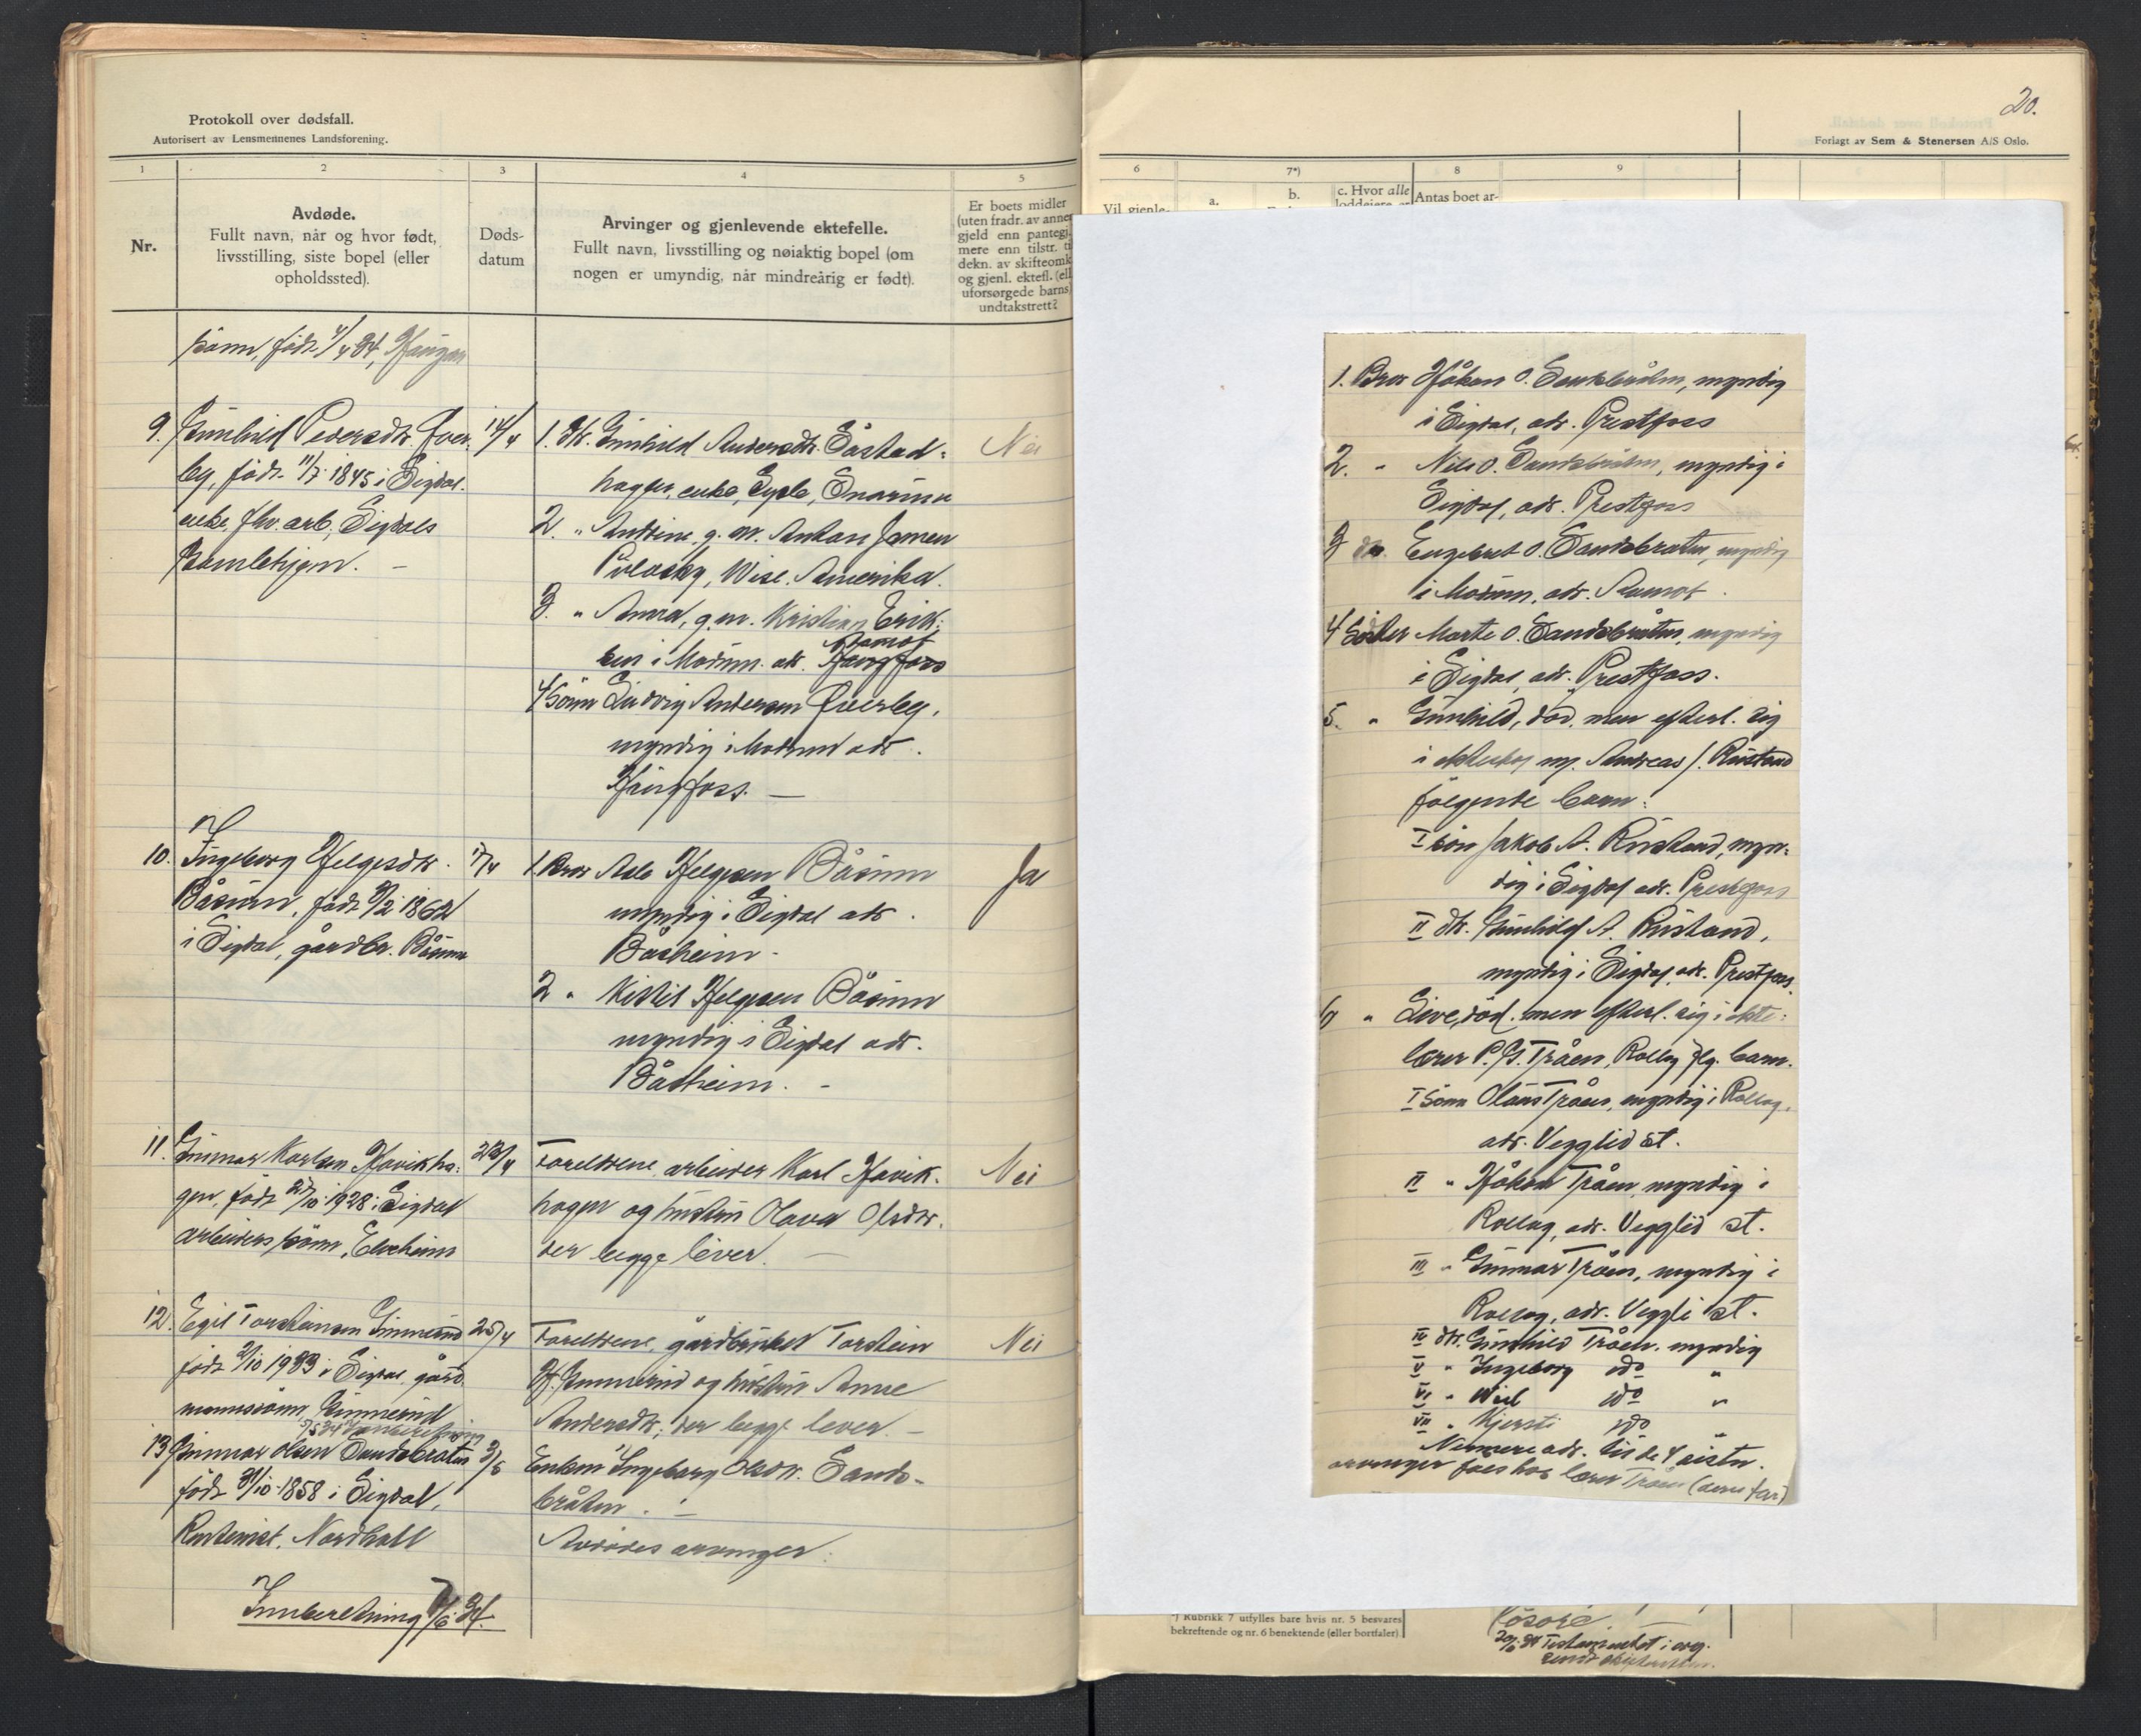 Protokoll over dødsfall.
Autorisert av Lensmennenes Landsforening.
1
2
3
4
5
Nr.
Avdøde.
Fullt navn, når og hvor født,
livsstilling, siste bopel (eller
opholdssted).
Døds-
datum
Arvinger og gjenlevende ektefelle.
Fullt navn, livsstilling og nøiaktig bopel (om
nogen er umyndig, når mindreårig er født).
Er boets midler
(uten fradr. av annen
gjeld enn pantegj.
mere enn tilstr. ti
dekn. av skifteomk
og gjenl. ektefl. (ell
uforsørgede barns)
undtakstrett?
sönn, födt 4/4 34,
9. Gunhild Pedersdtr. Över-
by, födt 11/7 1845 i Sigdal.
enke, fhv. arb., Sigdals
gamlehjem. -
14/4
1. Dtr. Gunhild Andersdtr. Båstad-
hagen, enke, Eggedal, Snarum
2. " Andrine, g. m. Anton Jensen
Pulasky, Wisc. Amerika.
3. " Anna, g. m. Kristian Erik-
sen i Modum. adr. Åmot
4 Sönn Ludvig Andersen Överby,
myndig i Modum adr.
Haugfoss. —
Nei
10. Ingeborg Helgesdtr.
Båsum, födt 9/2 1862
i Sigdal, gårdbr. Båsum
17/4
1. Bror Asle Helgesen Båsum
myndig i Sigdal adr.
Båsheim -
2 " Kittil Helgesen Båsum
myndig i Sigdal adr.
Båsheim. -
Ja
11. Gunnar Karlsen Havikha-
gen, födt 27/10 1928 i Sigdal
arbeiders sönn,
23/4
Foreldrene arbeider Karl Havik-
hagen og hustru Olava Olsdtr.
der begge lever. —
Nei
12. Egil Torsteinsen Gunnerud
födt 2/10 1933 i Sigdal, gård-
mannssönn, Gunnerud
25/4
Foreldrene, gårdbruker Torstein
H. Gunnerud og hustru Anne
Andersdtr., der begge lever. —
Nei
13 Gunnar Olsen Sandsbråten
födt 31/10 1858 i Sigdal,
Nordhall
3/5
Enken Ingeborg Olsdtr. Sands-
bråten. -
Avdödes arvinger:
Innberetning 7/6 34.
20.
Forlagt av Sem & Stenersen A/S Oslo.
6
7*)
8
9
Vil gjenle-
a.
b.
c. Hvor alle
loddeiere er
Antas boet ar-
1. Bror Håkon O. Sandsbråten, myndig
i Sigdal, adr. Prestfoss
2. " Nils O. Sandsbråten, myndig i
Sigdal, adr. Prestfoss
3 do. Engebret O. Sandsbraten, myndig
i Modum, adr. Aamot.
4 Söster Marte O. Sandsbråten, myndig
i Sigdal, adr. Prestfoss.
5. " Gunhild, död, men efterl. sig
i ekteskap m. Andreas J. Rustand
fölgende barn:
I sön Jakob A. Rustand, myn-
dig i Sigdal adr. Prestfoss
II dtr. Gunhild A. Rustand,
myndig i Sigdal, adr. Prestfoss.
6 " Live, död, men efterl. sig i ekte-
lærer P. G. Tråen, Rollag flg. barn.
I sönn Olaus Tråen, myndig i Rollag,
adr. Vegglid st.
II " Håkon Tråen, myndig i
Rollag, adr. Vegglid st.
III " Gunnar Tråen, myndig i
Rollag, adr. Veggli st.
IV dtr. Gunhild Tråen, myndig
V " Ingeborg do "
VI " do "
VII " Kjersti do "
Nærmere adr. til de 4 sistn.
arvinger fåes hos lærer Tråen (deres far)
*) Rubrikk 7 utfylles bare hvis nr. 5 besvares
bekreftende og nr. 6 benektende (eller bortfaller)
lösöre. —
20/6 34 Testamentet i org.
sendt